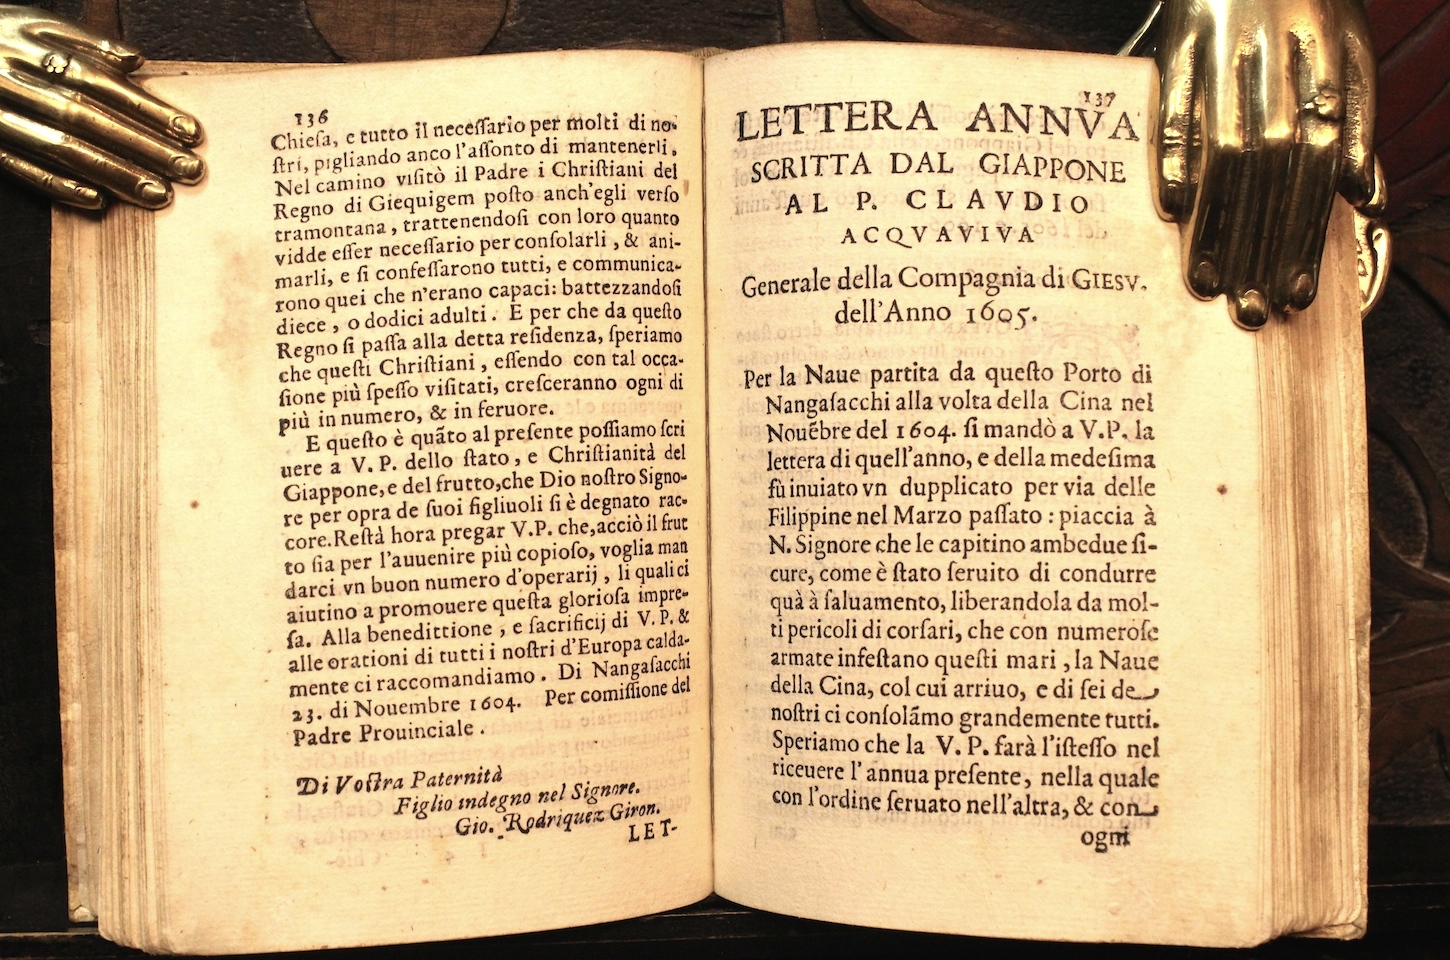 136
Chieſa, e tutto il neceſſario per molti di no-
ſtri, pigliando anco l'aſſonto di mantenerli.
Nel camino viſitò il Padre i Chriſtiani del
Regno di Giequigem poſto anch'egli verſo
tramontana, trattenendoſi con loro quanto
vidde eſſer neceſſario per conſolarli, & ani-
marli, e ſi confeſſarono tutti, e communica-
rono quei che n'erano capaci: battezzandoſi
diece, o dodici adulti. E per che da queſto
Regno ſi paſſa alla detta reſidenza, ſperiamo
che queſti Chriſtiani, eſſendo con tal occa-
ſione più ſpeſſo viſitati, creſceranno ogni di
più in numero, & in feruore.
E queſto è quãto al preſente poſſiamo ſcri
uere a V. P. dello ſtato, e Chriſtianità del
Giappone, e del frutto, che Dio noſtro Signo-
re per opra de ſuoi figliuoli ſi è degnato rac-
core. Reſtà hora pregar V.P. che, acciò il frut
to ſia per l'auuenire più copioſo, voglia man
darci vn buon numero d'operarij, li quali ci
aiutino a promouere queſta glorioſa impre-
ſa. Alla benedittione, e ſacrificij di V. P. &
alle orationi di tutti i noſtri d'Europa calda-
mente ci raccomandiamo. Di Nangaſacchi
23. di Nouembre 1604. Per comiſſione del
Padre Prouinciale.
Di Voſtra Paternità
Figlio indegno nel Signore.
Gio. Rodriquez Giron.
LET-
137
LETTERA ANNVA
SCRITTA DAL GIAPPONE
AL P. CLAVDIO
ACQVAVIVA
Generale della Compagnia di GIESV.
dell'Anno 1605.
Per la Naue partita da queſto Porto di
Nangaſacchi alla volta della Cina nel
Nouẽbre del 1604. ſi mandò a V.P. la
lettera di quell'anno, e della medeſima
fù inuiato vn dupplicato per via delle
Filippine nel Marzo paſſato: piaccia à
N. Signore che le capitino ambedue ſi-
cure, come è ſtato ſeruito di condurre
quà à ſaluamento, liberandola da mol-
ti pericoli di corſari, che con numeroſe
armate infeſtano queſti mari, la Naue
della Cina, col cui arriuo, e di ſei de
noſtri ci conſolãmo grandemente tutti.
Speriamo che la V. P. farà l'iſteſſo nel
riceuere l'annua preſente, nella quale
con l'ordine ſeruato nell'altra, & con
ogni